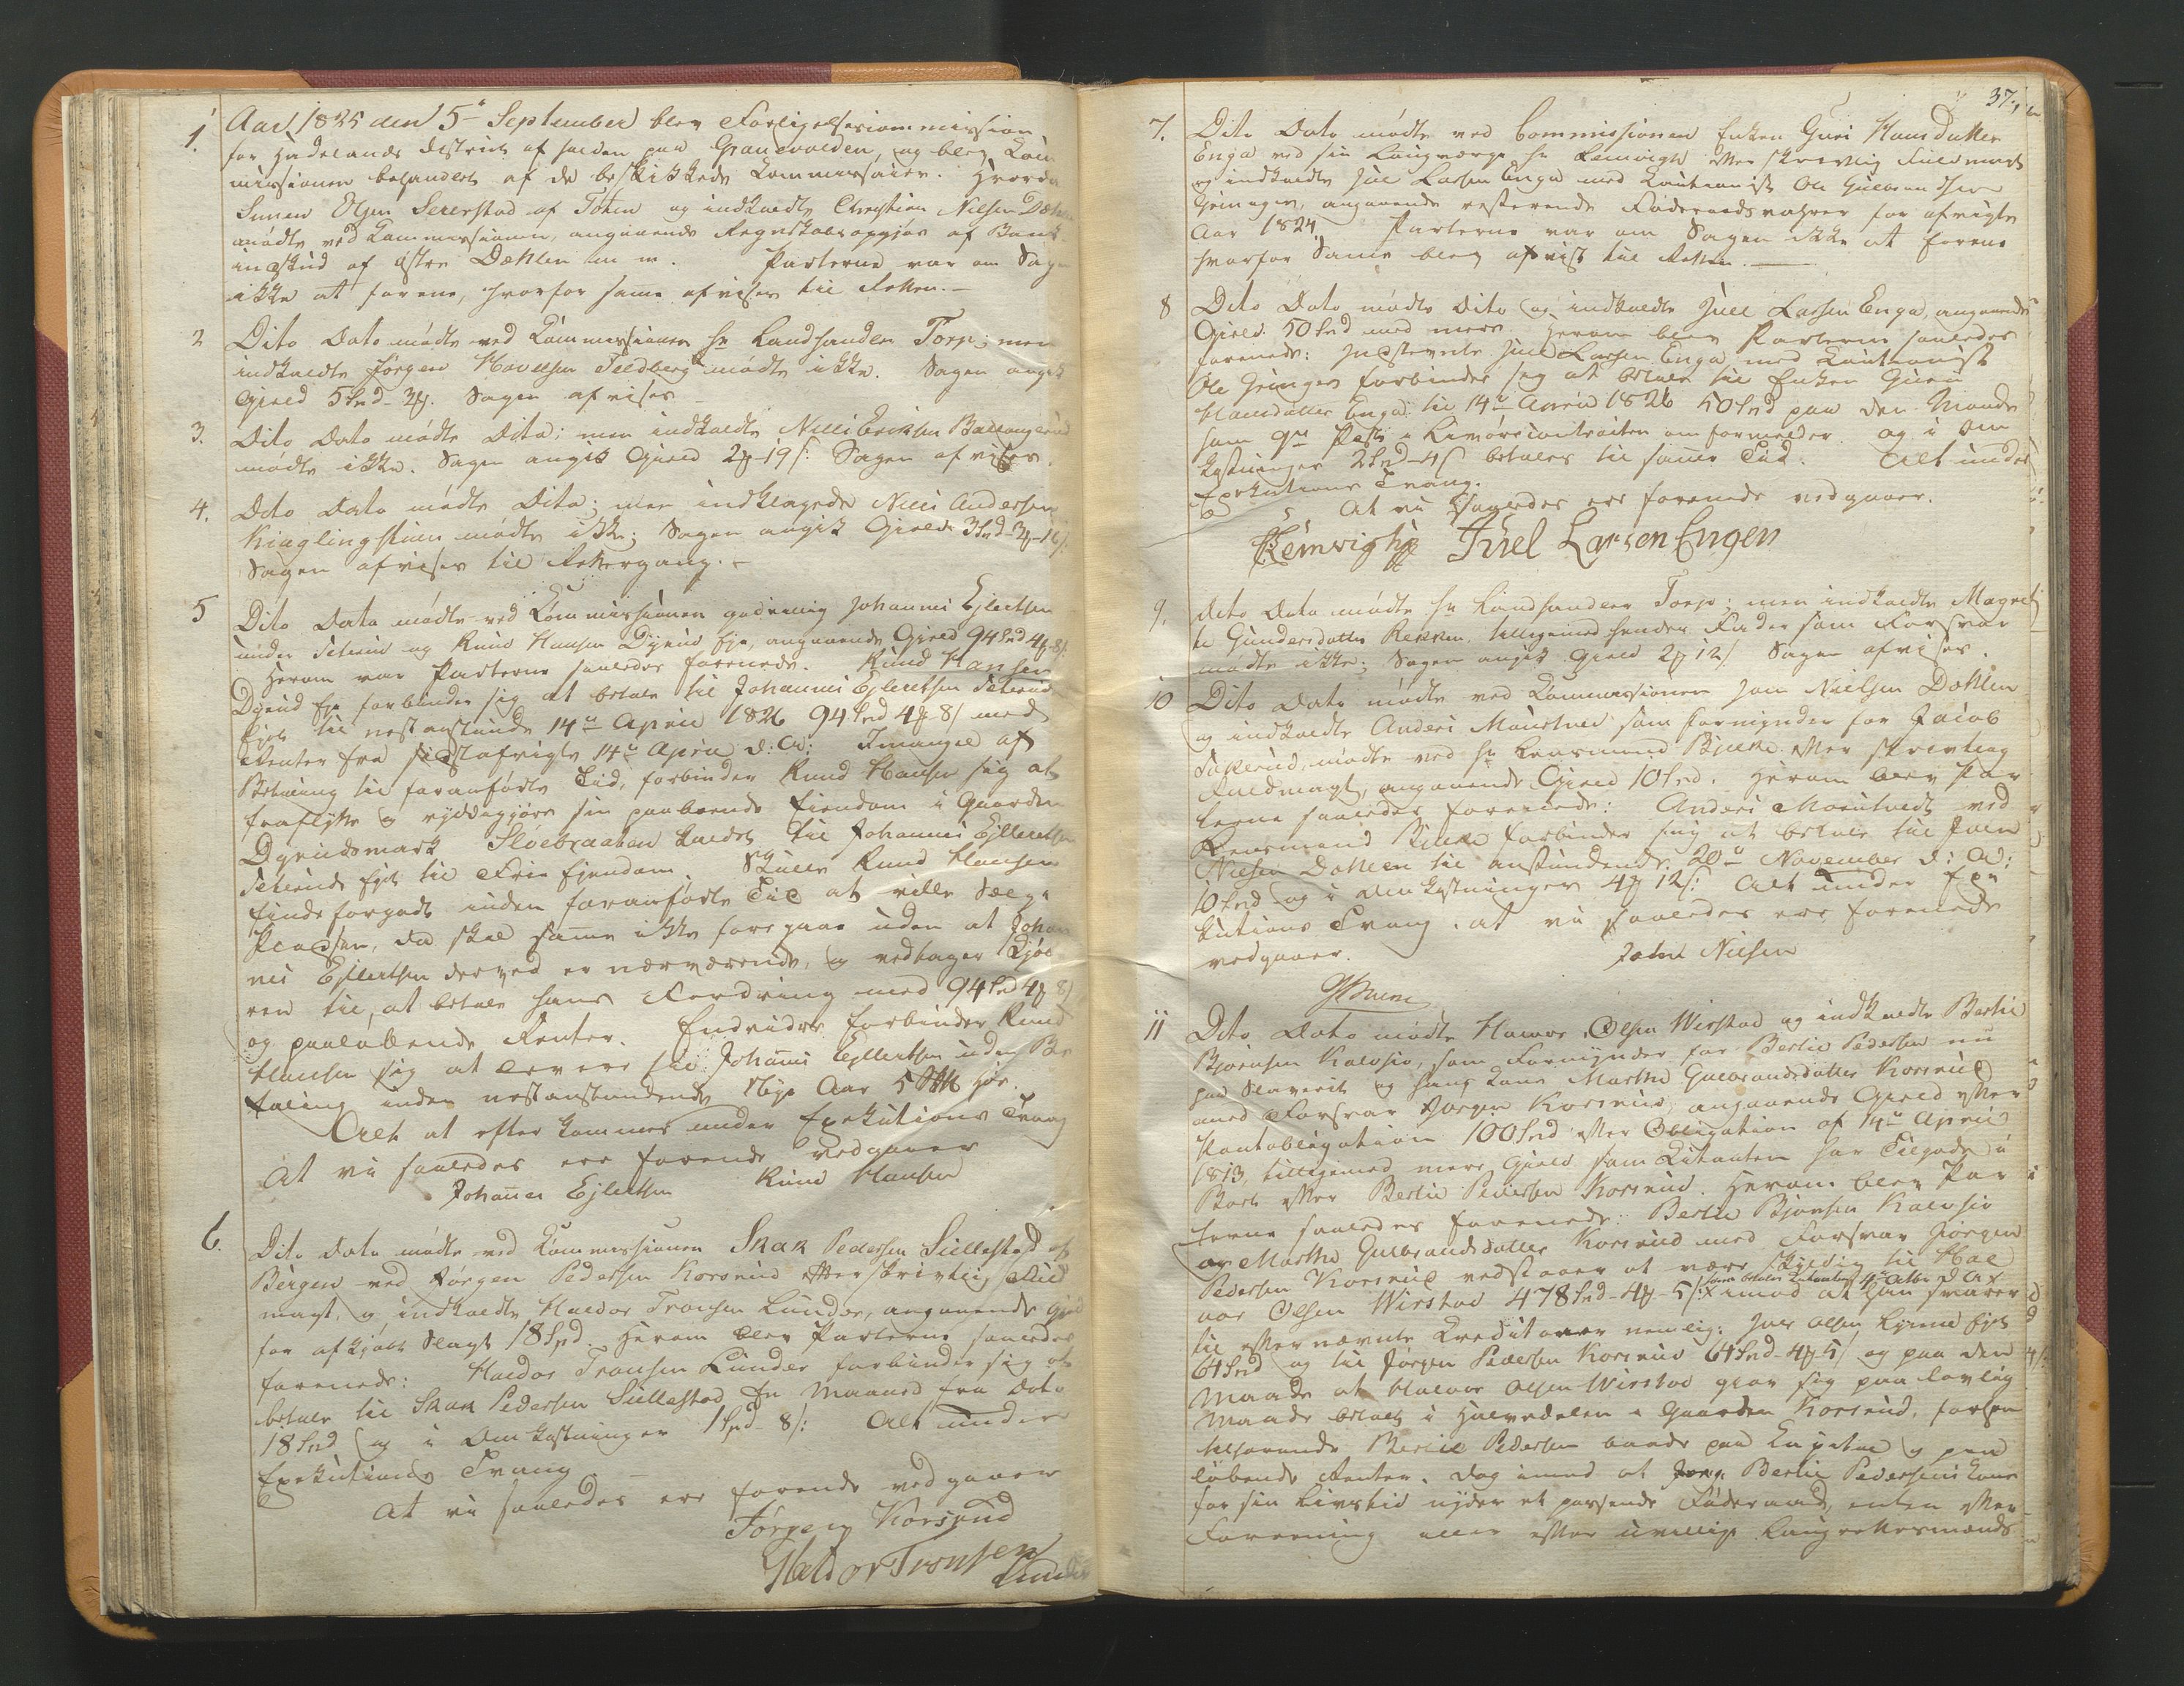 1.
Aar 1825 den 5te September blev Forligelsescommission
for Hadelands District af holden paa Granevolden, og blev Kom
missionen behandlet af de beskikkede Commissairer. Hvorda
Simen Olsen Seierstad af Toten og indkaldte Christian Nielsen Dæhlen
mødte ved Kommissionen, angaaende Regnskabs opgjør af Bank-
indskud af østre Dæhlen m m. Parterne var om Sagen
ikke at forene, hvorfor samme afvises til Retten.-
2
Dito Dato mødte ved Kommissionen Hr Landhandler Torp; men
indkaldte Jørgen Hovelsen Feldberg mødte ikke. Sagen angik
Gjeld 5 Spd - 3 ₰. Sagen afvises
3.
Dito Dato mødte Dito; men indkaldte Niels Eriksen
mødte ikke. Sagen angik Gjeld 2 ₰ - 19 s: Sagen afvises.
4.
Dito Dato mødte Dito; men indklagede Niels Andersen
Kiæglingstuen mødte ikke; Sagen angik Gjeld 3 Spd - 3 ₰ -
Sagen afvises til Rettergang.-
5
Dito Dato mødte ved Kommissionen godvillig Johannes Ejlertsen
under Seterud og Knud Hansen Dyrud Eje, angaaende Gjeld 94 Spd 4 ₰ - 8 s.
Herom var Parterne saaledes forenede. Knud Hansen
Dyrud Eje forbinder sig at betale til Johannes Ejlertsen Seterud
Ejet til nestanstundende 14de April 1826 94 Spd 4 ₰ 8 s med
Renter fra sidstafvigte 14de April d: A: Imangel af
Betaling til foranførte Tid, forbinder Knud Hansen sig at
fraflytte og ryddiggjøre sin paaboende Eiendom i Gaarden
Dyrudsmark Sloebraaten kaldet til Johannes Ejlertsen
Seteruds Ejet til Frie Ejendom. Skulle og Knud Hansen
finde forgodt inden foranførte Tid at ville Sælge
Pladsen, da skal samme ikke foregaae uden at Johan
nes Ejlertsen derved er nærværende, og vedtager Kjøbe
ren til, at betale hans Fordring med 94 Spd 4 ₰ 8 s
og paaløbende Renter. Endvidre forbinder Knud
Hansen sig at levere til Johannes Ejlertsen uden Be
taling inden nestanstundende Nyt Aar 5 Høe.
Alt at efterkommes under Exekutions Tvang
At vi saaledes ere forende vedgaaer
Johannes Ejlertsen Knud Hansen
6.
Dito Dato mødte ved Kommissionen Skak Pedersen Sullestad af
Bergen ved Jørgen Pedersen Korsrud efter skrivtlig Fuld
magt, og indkaldte Haldor Tronsen Lunder, angaaende Gjeld
for afkjøbt Slagt 18 Spd. Herom blev Parterne saaledes
forenede: Haldor Tronsen Lunder forbinder sig at
betale til Skak Pedersen Sullestad En Maaned fra Dato
18 Spd og i Omkostninger 1 Spd 8 s: Alt under
Exekutions Tvang. -
At vi saaledes ere forende vedgaaer
Jørgen Korsrud
Haldor Tronsen
Lunder
37.
7.
Dito Dato mødte ved Commissionen Enken Guri Hansdatter
Enga ved sin Laugværge Hr Remvigh efter skrivtlig Fuldmagt
og indkaldte Juel Larsen Enga med Kautionist Ole Gulbrandsen
Gringen, angaaende resterende Føderaadsvahrer for afvigte
Aar 1824. Parterne var om Sagen ikke at forene
hvorfor Samme blev afvist til Retten.
8
Dito Dato mødte Dito og indkaldte Juel Larsen Enga, angaaende
Gjeld 50 Spd med mere. Herom blev Parterne saaledes
forenede: Indstevnte Juel Larsen Enga med Kautionist
Ole Gringen forbinder sig at betale til Enken Guri
Hansdatter Enga til 14de April 1826 50 Spd paa den Maade
som 9de Post i Livørecontracten om formelder. og i Om
kostninger 2 Spd - 4 s betales til samme Tid. Alt under
Exekutions Tvang.
At vi saaledes ere forenede vedgaaer.
Remvigh Juel Larsen Engen
9.
Dito Dato mødte Hr Landhandler Torp; men indkaldte Magret
te Gundersdatter Rekken, tilligemed hendes Fader som Forsvar
mødte ikke; Sagen angik Gjeld 2 ₰ 12 s Sagen afvises.
10
Dito Dato mødte ved Kommissionen John Nielsen Dæhlen
og indkaldte Anders Moestued som Formynder for Jacob
Sakerud, mødte ved Hr Lensmand Bjerke efter skrivtlig
Fuldmagt, angaaende Gjeld 10 Spd. Herom blev Par
terne saaledes forenede: Anders Moestued ved
Lensmand Bjerke forbinder sig at betale til John
Nielsen Dæhlen til anstundende 20de November d: A:
10 Spd og i Omkostninger 4 ₰ 12 s: Alt under Exe
kutions Tvang. at vi saaledes ere forenede
vedgaaer. John Nielsen
11
Dito Dato mødte Halvor Olsen Wirstad og indkaldte Bertil
Bjørnsen Kalvsjo, som Formynder for Bertil Pedersen nu
paa Slaveriet og hans Kone Marthe Gulbrandsdatter Korsrud
med Forsvar Jørgen Korsrud, angaaende Gjeld efter
Pantobligation 100 Spd efter Obligation af 14de April
1813, tilligemed mere Gjeld som Citanten har Tilgode i
Boet efter Bertil Pedersen Korsrud. Herom blev Par
terne saaledes forenede: Bertil Bjørnsen Kalvsjo
og Marthe Gulbrandsdatter Korsrud med Forsvar Jørgen
Pedersen Korsrud vedstaaer at være skyldig til Hal
vor Olsen Wirstad 478 Spd - 4 ₰ - 5 s imod at han svarer
til efternævnte Creditorer nemlig: Iver Olsen Lynne Ejet
64 Spd og til Jørgen Pedersen Korsrud 64 Spd - 4 ₰ 5 s og paa den
Maade at Halvor Olsen Wirstad giør sig paa lovlig
Maade betalt i Halvedelen i Gaarden Korsrud, forhen
tilhørende Bertil Pedersen baade paa Kapital og paa
løbende Renter. Dog imod at Bertil Pedersens Kone
for sin Livstid nyder et passende Føderaad, enten efter
Forening eller efter uvillige Laugrettesmænds